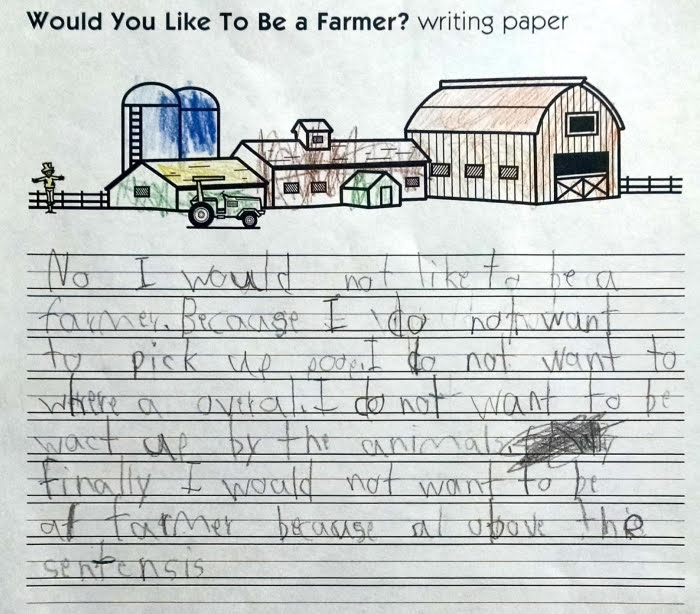 Would You Like To Be a Farmer? writing paper
No I would not like to be a
farmer. Because I do not want
to pick up poop. I do not want to
where a overal. I do not want to be
wact up by the animals.
Finally I would not want to be
a farmer because al above the
sentensis